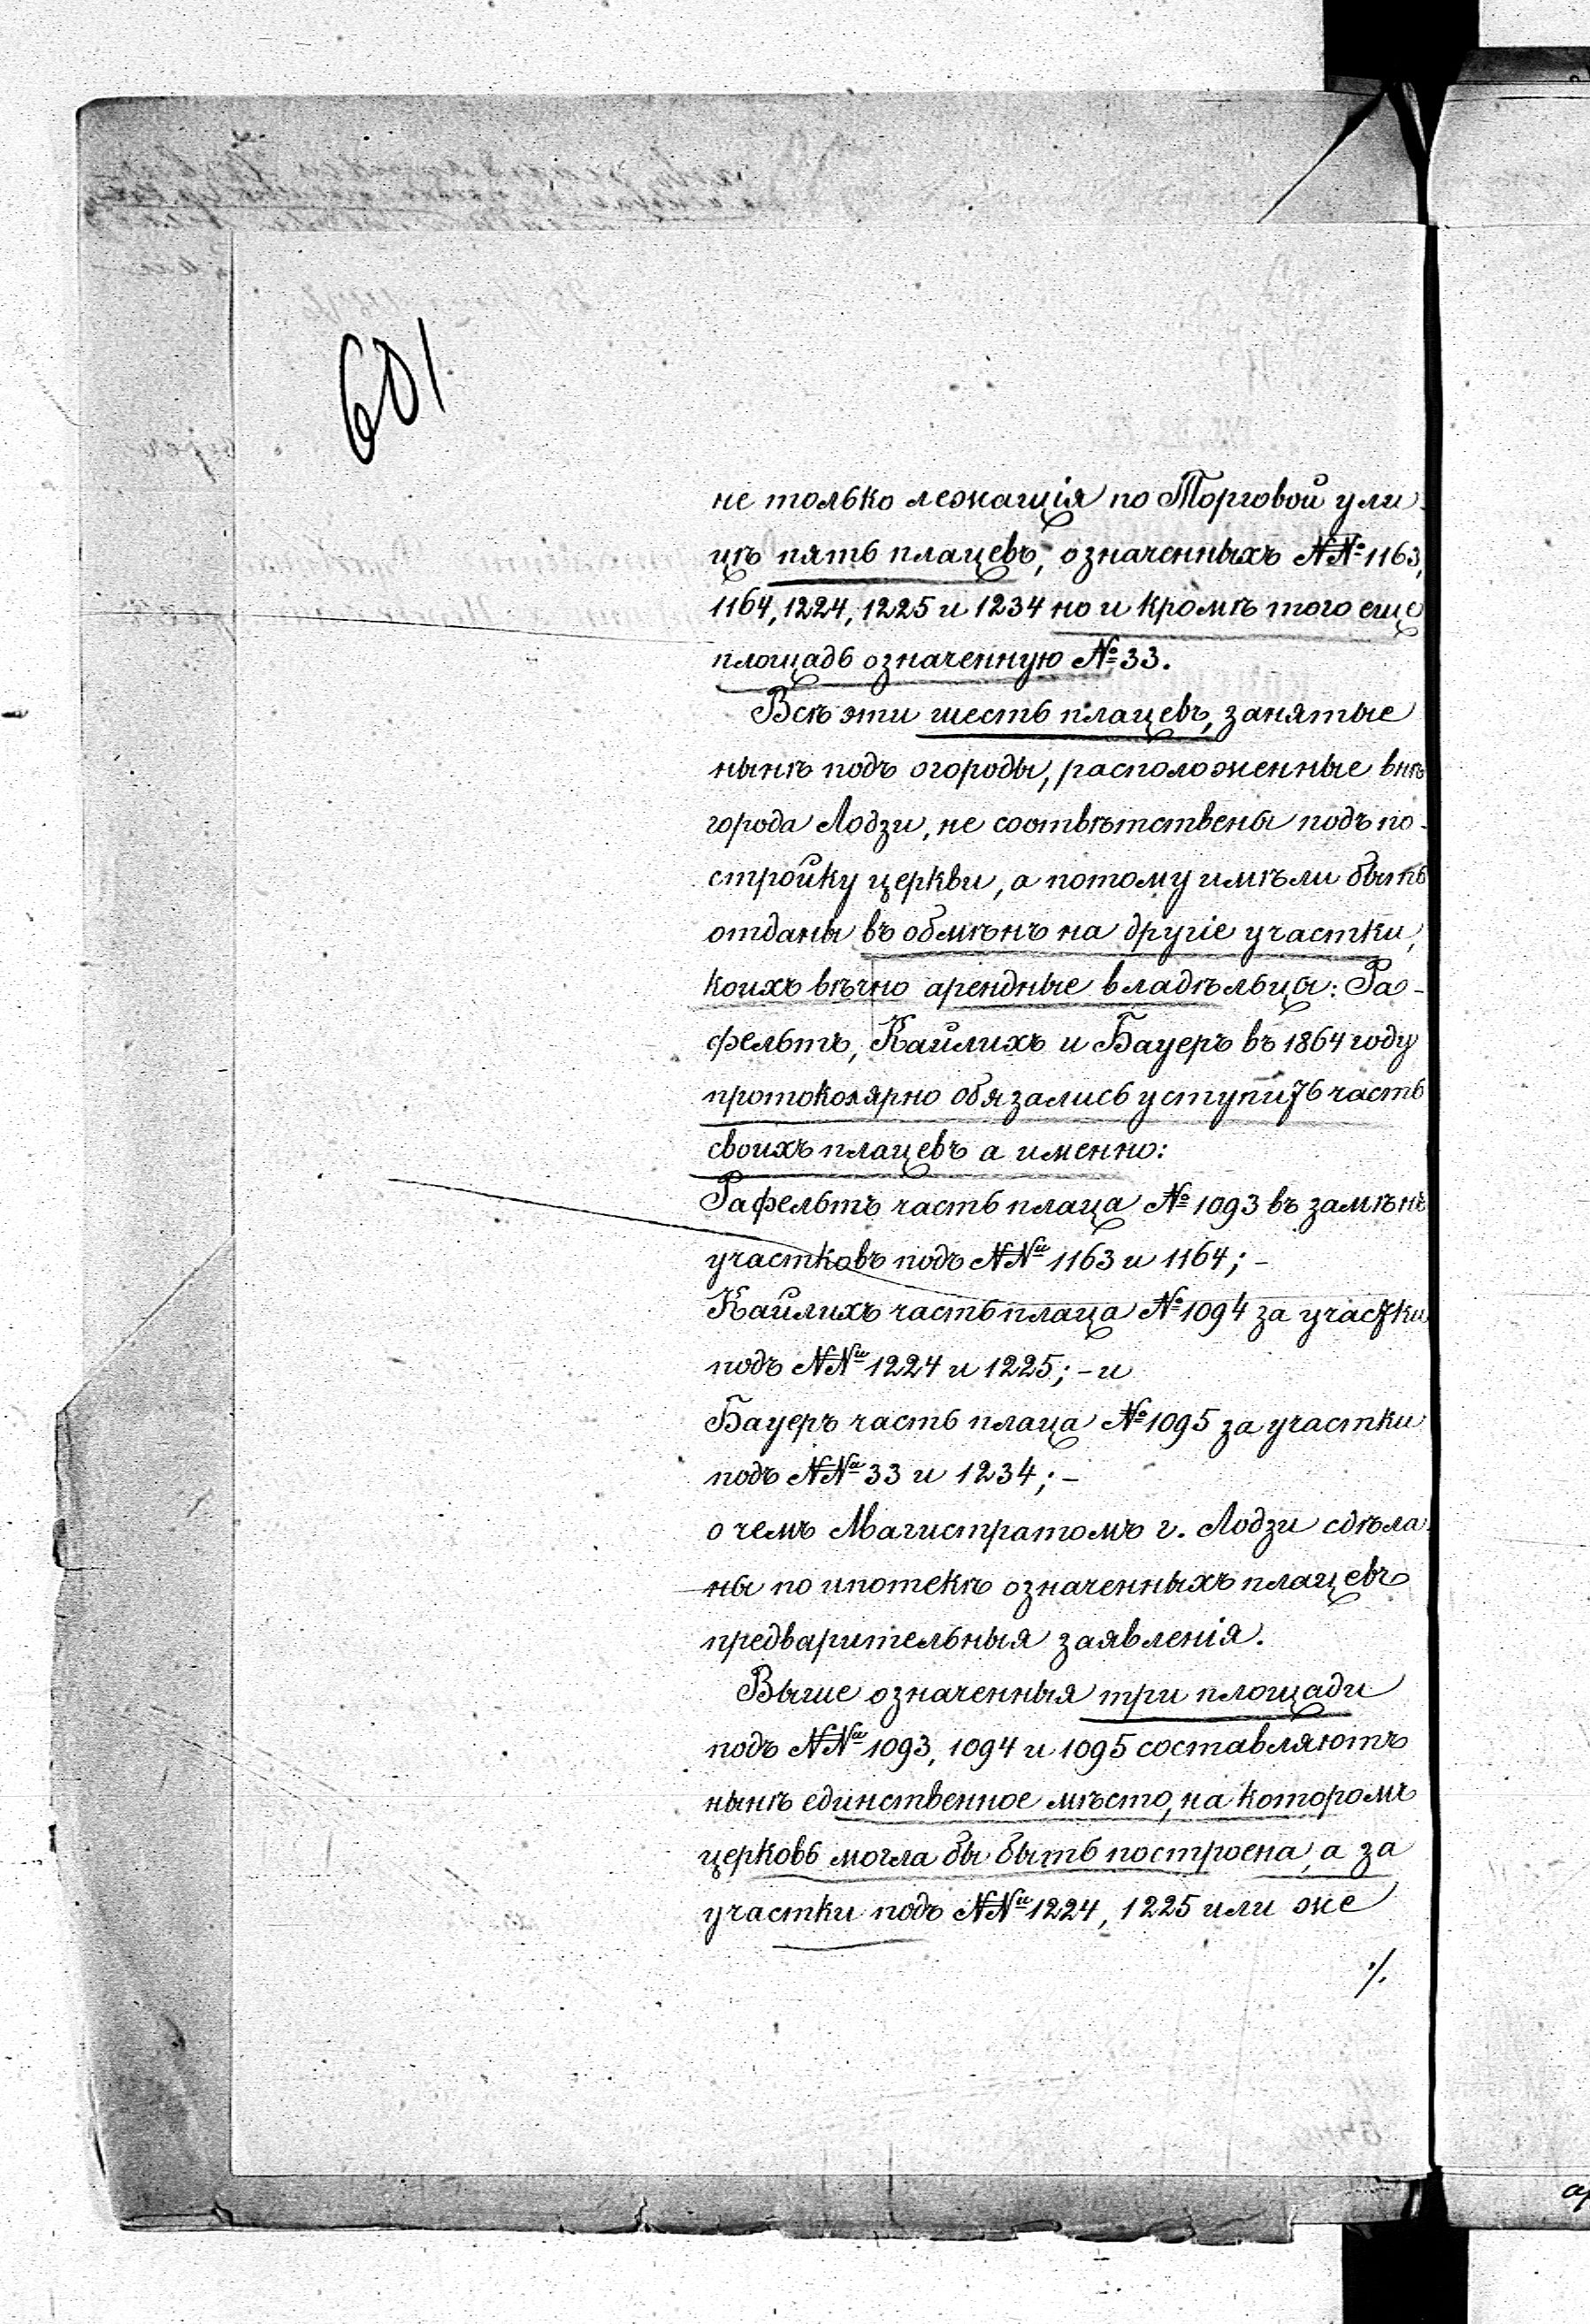 601
не только лежащія по Торговой ули-
цѣ пять плацевъ, означенныхъ №№ 1163,
1164, 1224, 1225 и 1234 но и кромѣ того еще
площадь означенную № 33.
Всѣ эти шесть плацевъ, занятые
нынѣ подъ огороды, расположенные внѣ
города Лодзи, не соотвѣтствены подъ по-
стройку церкви, а потому имѣли быть
отданы въ обмѣнъ на другіе участки,
коихъ вѣчно арендные владѣльцы: Ра-
фельтъ, Кайлихъ и Бауеръ въ 1864 году
протоколярно обязались уступить часть
своихъ плацевъ а именно:
Рафельтъ часть плаца № 1093 въ замѣнъ
участковъ подъ №№ 1163 и 1164; -
Кайлихъ часть плаца № 1094 за участки
подъ №№ 1224 и 1225; - и
Бауеръ часть плаца № 1095 за участки
подъ №№ 33 и 1234; -
о чемъ Магистратомъ г. Лодзи сдѣла-
ны по ипотекѣ означенныхъ плацевъ
предварительныя заявленія.
Выше означенныя три площади
подъ №№ 1093, 1094 и 1095 составляютъ
нынѣ единственное мѣсто, на которомъ
церковь могла бы быть построена, а за
участки подъ №№ 1224, 1225 или же
./.